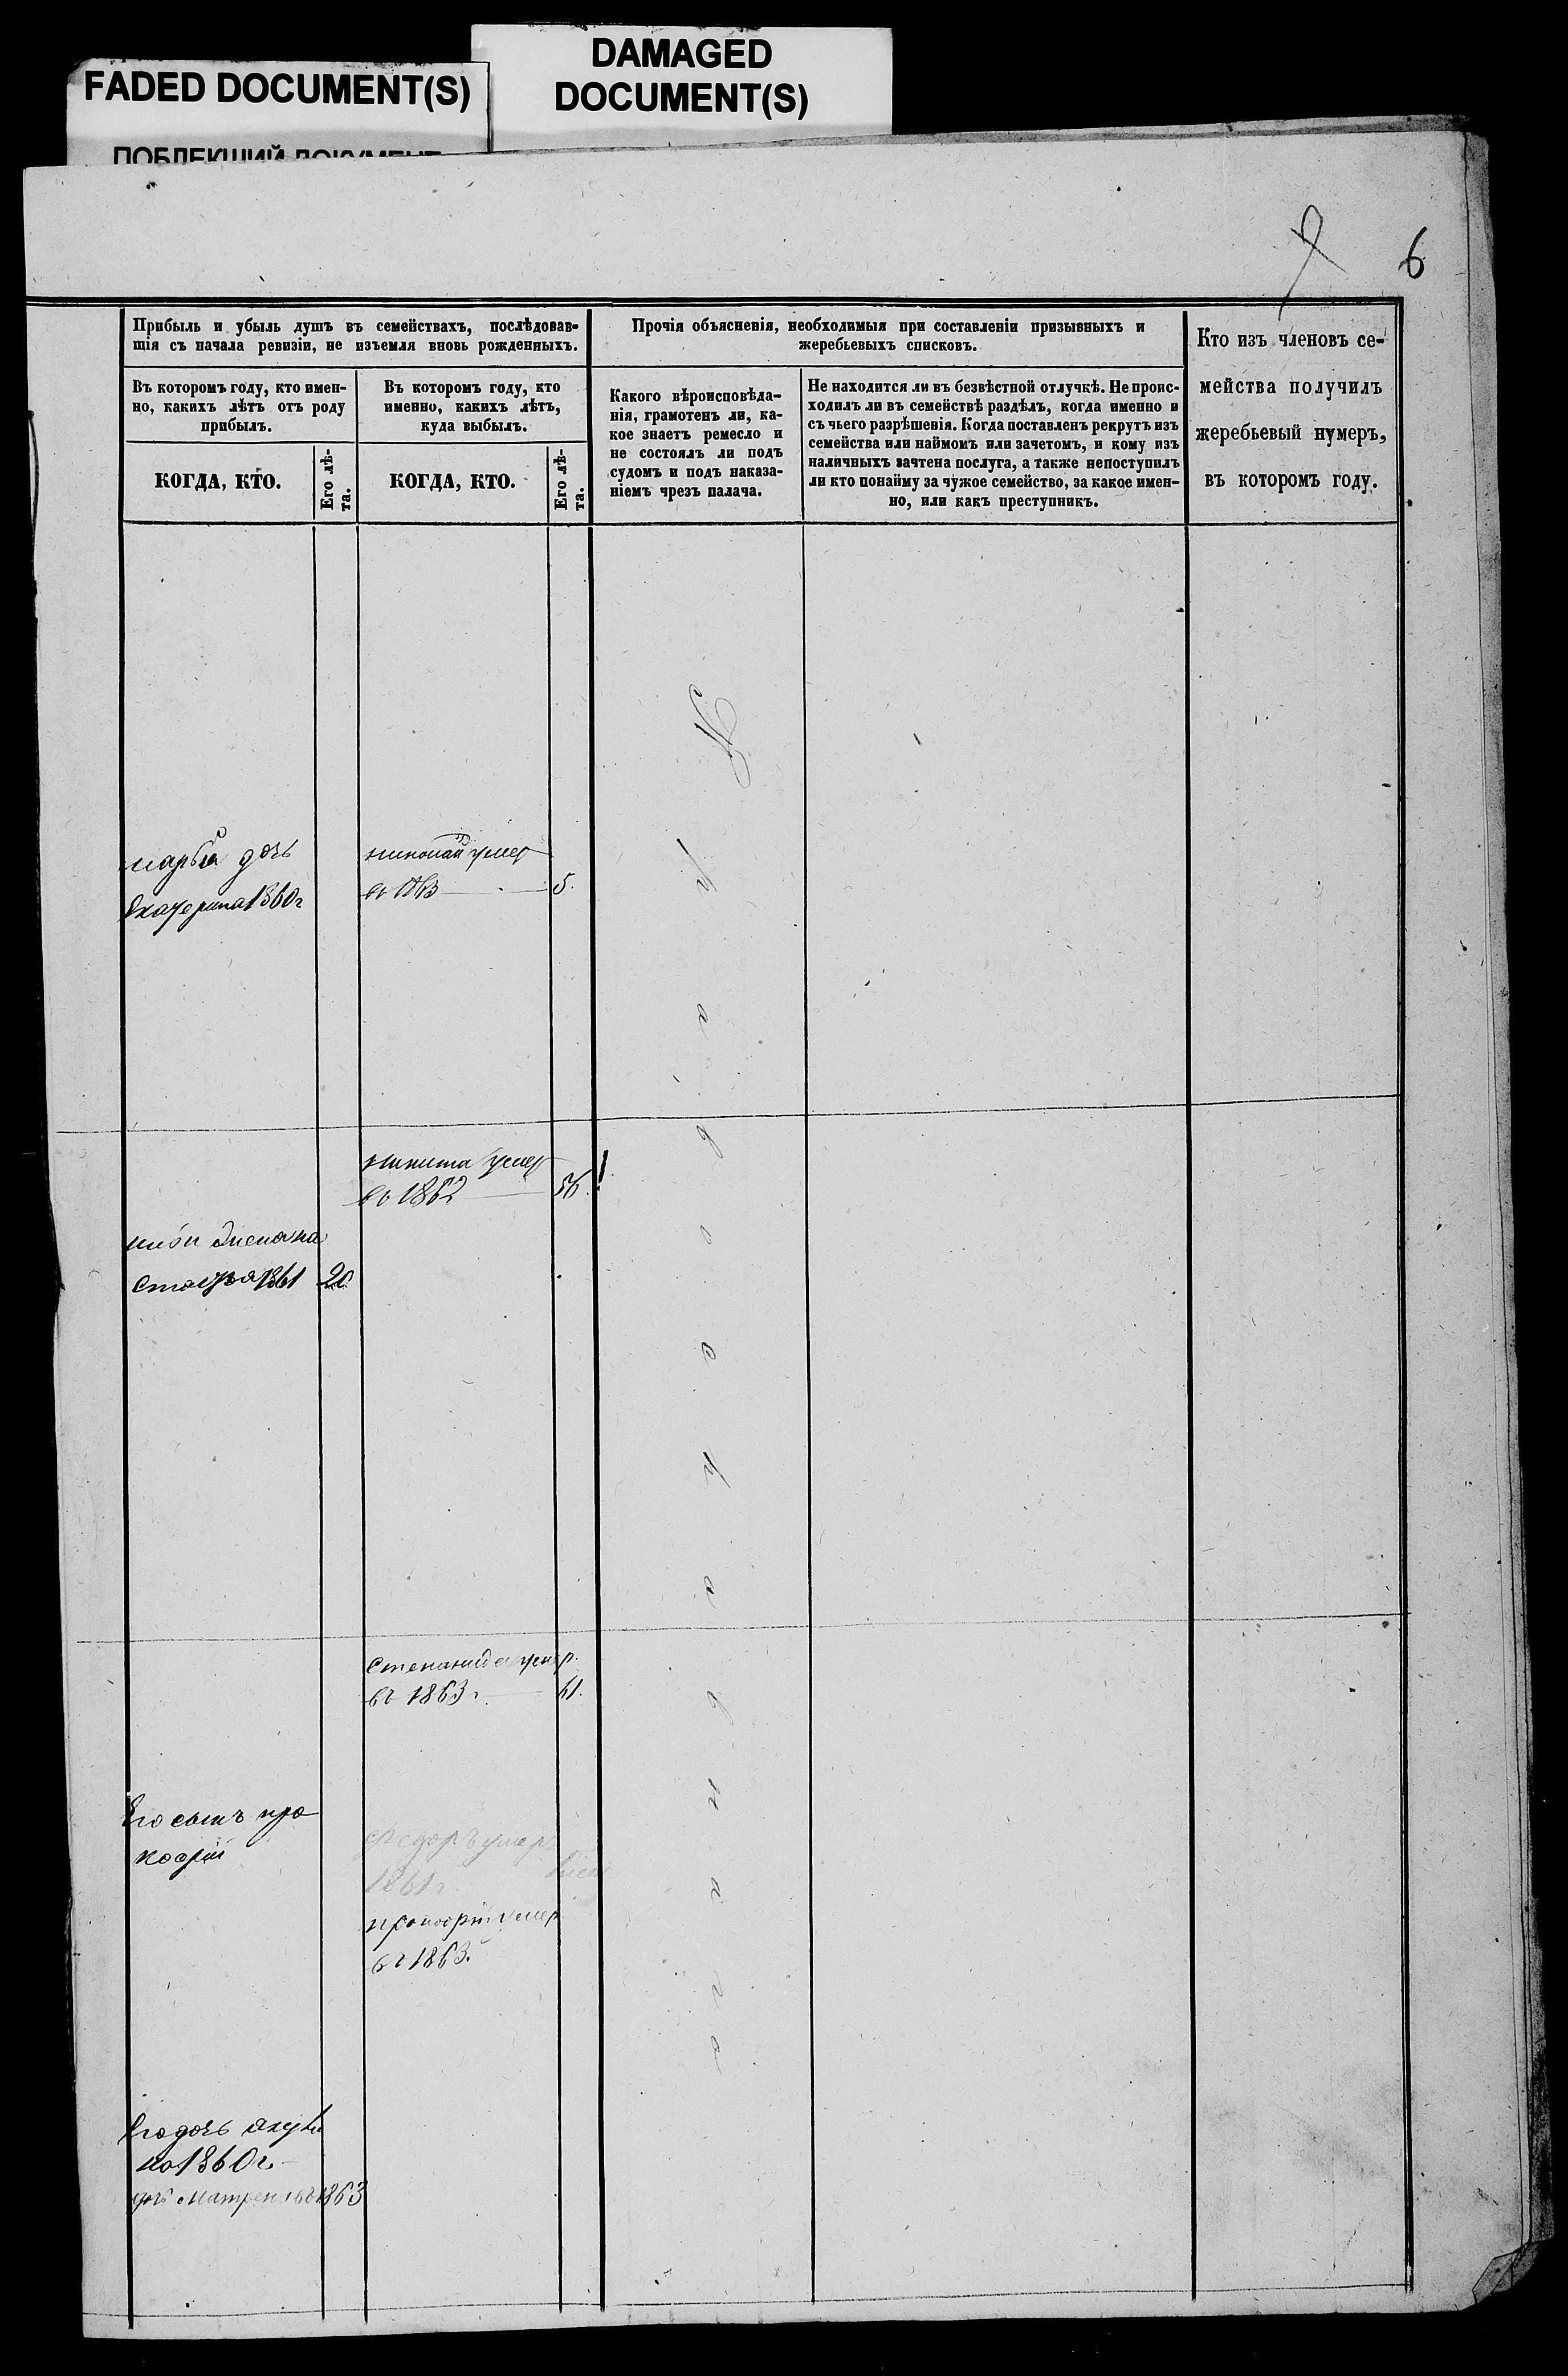 DAMAGED
DOCUMENT(S)
FADED DOCUMENT(S)
ПОБЛЕКШИЙ ДОКУМЕНТ
6
Прибыль и убыль душъ въ семействахъ, послѣдовав-
шія съ начала ревизіи, не изъемля вновь рожденныхъ.
Въ которомъ году, кто имен-
но, какихъ лѣтъ отъ роду
прибылъ.
КОГДА, КТО.
Его лѣ-
та.
Въ которомъ году, кто
именно, какихъ лѣтъ,
куда выбылъ.
КОГДА, КТО.
Его лѣ-
та.
Прочія объясненія, необходимыя при составленіи призывныхъ и
жеребьевыхъ списковъ.
Какого вѣроисповѣда-
нія, грамотенъ ли, ка-
кое знаетъ ремесло и
не состоялъ ли подъ
судомъ и подъ наказа-
ніемъ чрезъ палача.
Не находится ли въ безвѣстной отлучкѣ. Не проис-
ходилъ ли въ семействѣ раздѣлъ, когда именно и
съ чьего разрѣшенія. Когда поставленъ рекрутъ изъ
семейства или наймомъ или зачетомъ, и кому изъ
наличныхъ зачтена послуга, а также непоступилъ
ли кто понайму за чужое семейство, за какое имен-
но, или какъ преступникъ.
Кто изъ членовъ се-
мейства получилъ
жеребьевый нумеръ,
въ которомъ году.
марья дочь
Екатерина 1860г
николай умер
5.
никита умер
въ 1862 56.
1861 20
Степанида умр.
въ 1863г. 61.
Его сынъ про
кофій
Федоръ умеръ
1861г
прокофій умер
въ 1863.
Его дочь акули
на 1860г.
дочь Матрена въ 1863